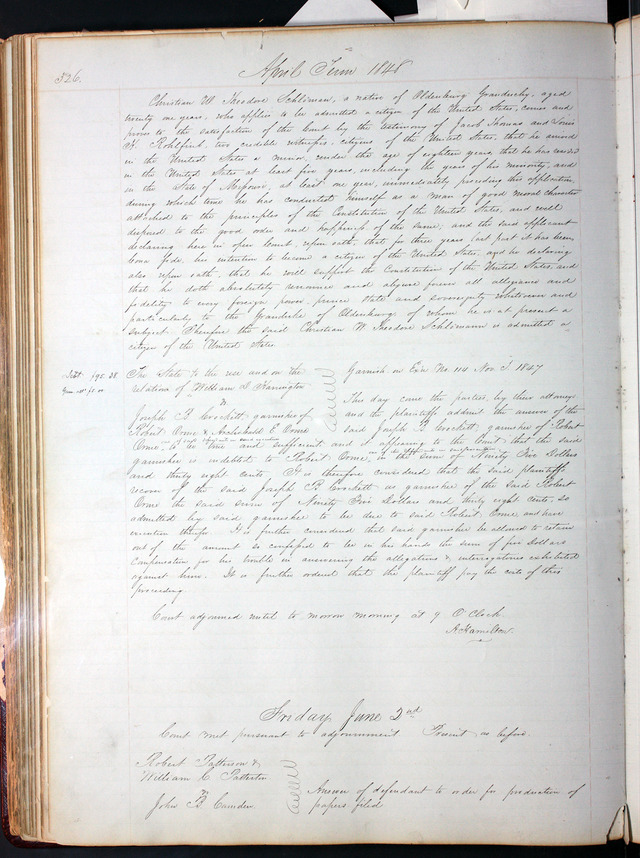 326.
April Term 1848
Christian W. Theodore Schliman, a native of Oldenburg Granduchy, aged
twenty one years, who applies to be admitted a citizen of the United States, comes and
proves to the satisfaction of the Court by the testimony of Jacob Thomas and Louis
W. Rohlfink, two credible witnesses, citizens of the United States, that he arrived
in the United States a minor, under the age of eighteen years, that he has resided
in the United States at least five years, including the years of his minority, and
in the State of Missouri, at least one year, immediately preceding this application,
during which time he has conducted himself as a man of good moral character
attached to the principles of the Constitution of the United States, and well
disposed to the good order and happiness of the same; and the said applicant
declaring here in open Court, upon oath, that for three years last past it has been,
bona fide, his intention to become a citizen of the United States, and he declaring
also upon oath, that he will support the Constitution of the United States, and
that he doth absolutely renounce and abjure forever all allegiance and
fidelity to every foreign power, prince state and sovereignty whatsoever and
particularly to the Granduke of Oldenburg of whom he is at present a
subject. Therefore the said Christian W Theodore Schlimann is admitted a
citizen of the United States.
Debt. $95.38
The State to the use and on the
relation of William S. Harrington
vs
Joseph B Crockett garnishee of
Robert Orme & Archibald E Orme
Garnish on Exn No 114 Nov T. 1847
This day come the parties, by their attorneys
and the plaintiffs admit the answer of the
said Joseph B Crockett, garnishee of Robert
Orme, to be true and sufficient and it appearing to the Court that the said
garnishee is indebted to Robert Orme, in the sum of Ninety Five Dollars
and thirty eight cents. It is therefore considered that the said plaintiffs
recover of the said Joseph B Crockett, as garnishee of the said Robert
Orme the said sum of Ninety Five Dollars and thirty eight cents, so
admitted by said garnishee to be due to said Robert Orme and have
execution therefor. It is further considered that said garnishee be allowed to retain
out of the amount so confessed to be in his hands the sum of five Dollars
compensation for his trouble in answering the allegations & interrogatories exhibited
against him. It is further ordered that the plaintiff pay the costs of this
proceeding.
Court adjourned until to morrow morning at 9 O'Clock
A Hamilton.
Friday June 2nd
Court met pursuant to adjournment Present as before.
Robert Patterson &
William C Patterson
vs
John B Camden
Answer of defendant to order for production of
papers filed